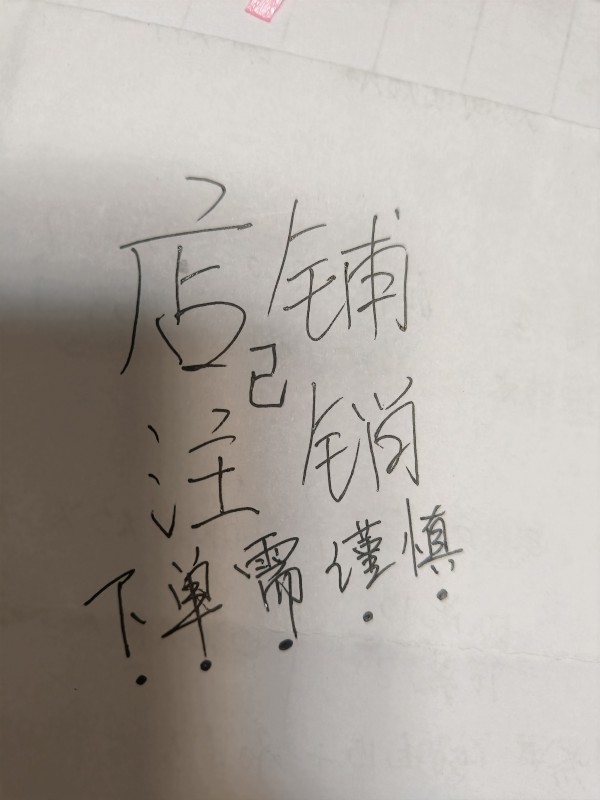 店铺
已
注销
下单需谨慎